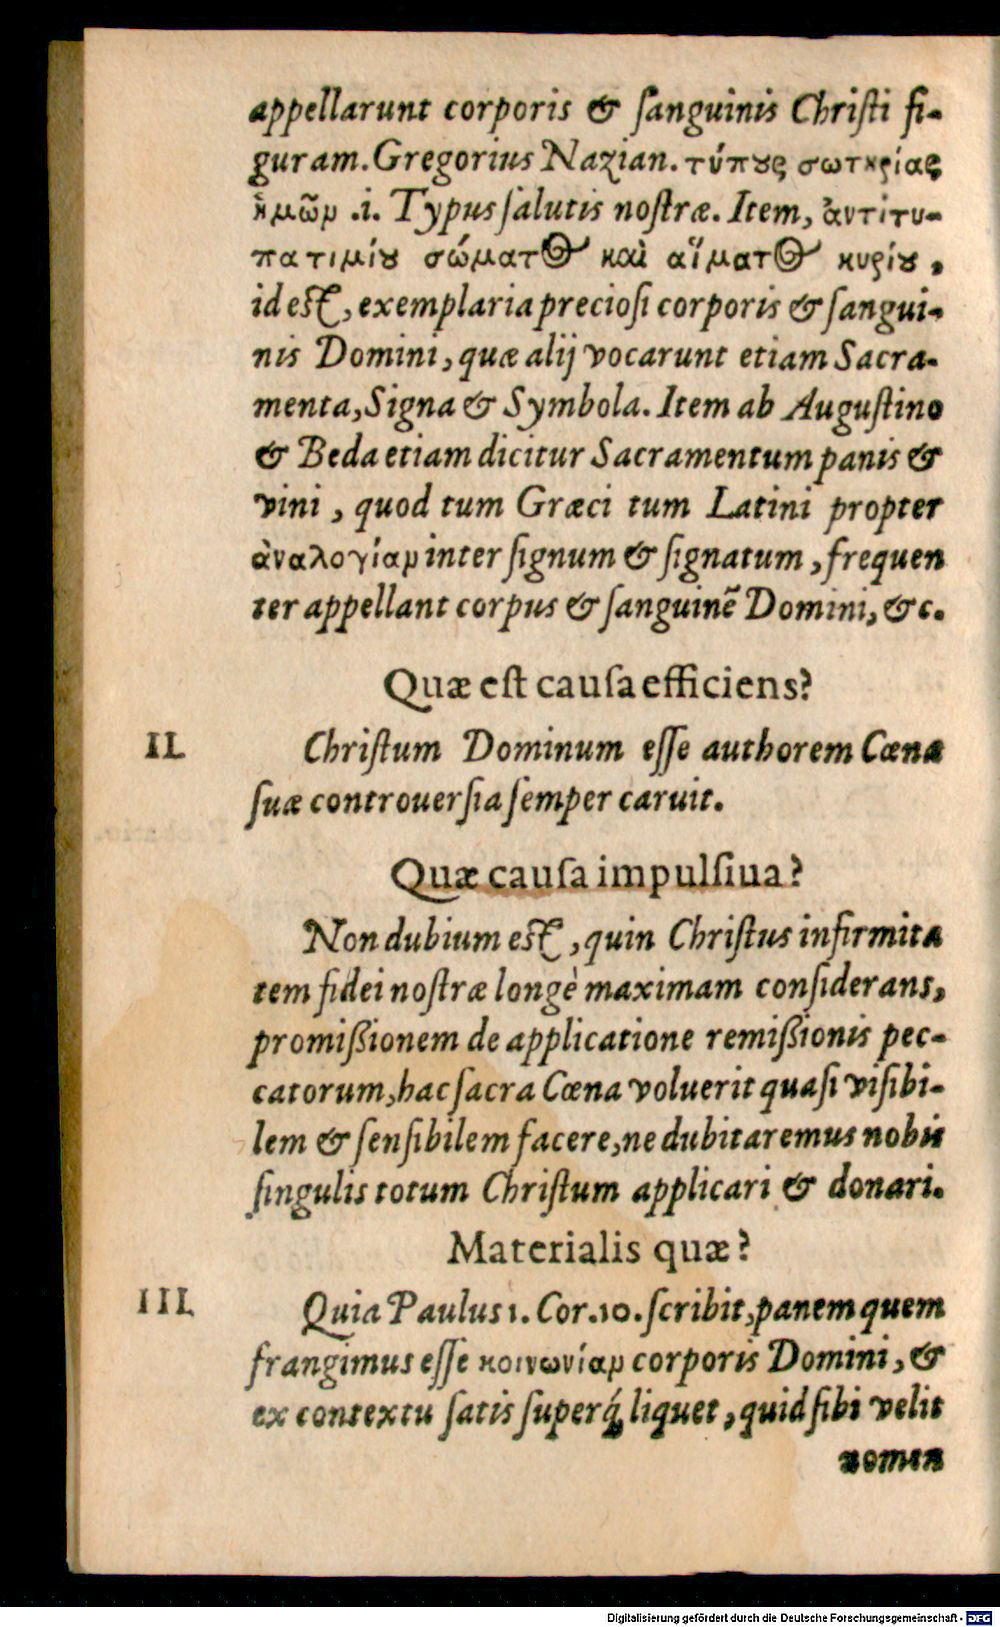 appellarunt corporis & ſanguinis Chriſti fi-
guram. Gregorius Nazian. τύπȣς σωτηρίας
ἡμῶν .i. Typus ſalutis noſtræ. Item, ἀντίτυ-
πα τιμίȣ σώματος καὶ αἵματος κυρίȣ,
id eſt, exemplaria precioſi corporis & ſangui-
nis Domini, quæ alij vocarunt etiam Sacra-
menta, Signa & Symbola. Item ab Auguſtino
& Beda etiam dicitur Sacramentum panis &
vini, quod tum Græci tum Latini propter
ἀναλογίαν inter ſignum & ſignatum, frequen
ter appellant corpus & ſanguinẽ Domini, &c.
Quæ eſt cauſa efficiens?
II. Chriſtum Dominum eſſe authorem Cœnæ
ſuæ controuerſia ſemper caruit.
Quæ cauſa impulſiua?
Non dubium eſt, quin Chriſtus infirmita
tem fidei noſtræ longè maximam conſiderans,
promiſsionem de applicatione remiſsionis pec-
catorum, hac ſacra Cœna voluerit quaſi viſibi-
lem & ſenſibilem facere, ne dubitaremus nobis
ſingulis totum Chriſtum applicari & donari.
Materialis quæ?
III. Quia Paulus 1. Cor. 10. ſcribit, panem quem
frangimus eſſe κοινωνίαν corporis Domini, &
ex contextu ſatis ſuperq́; liquet, quid ſibi velit
nomen
Digitalisierung gefördert durch die Deutsche Forschungsgemeinschaft - DFG